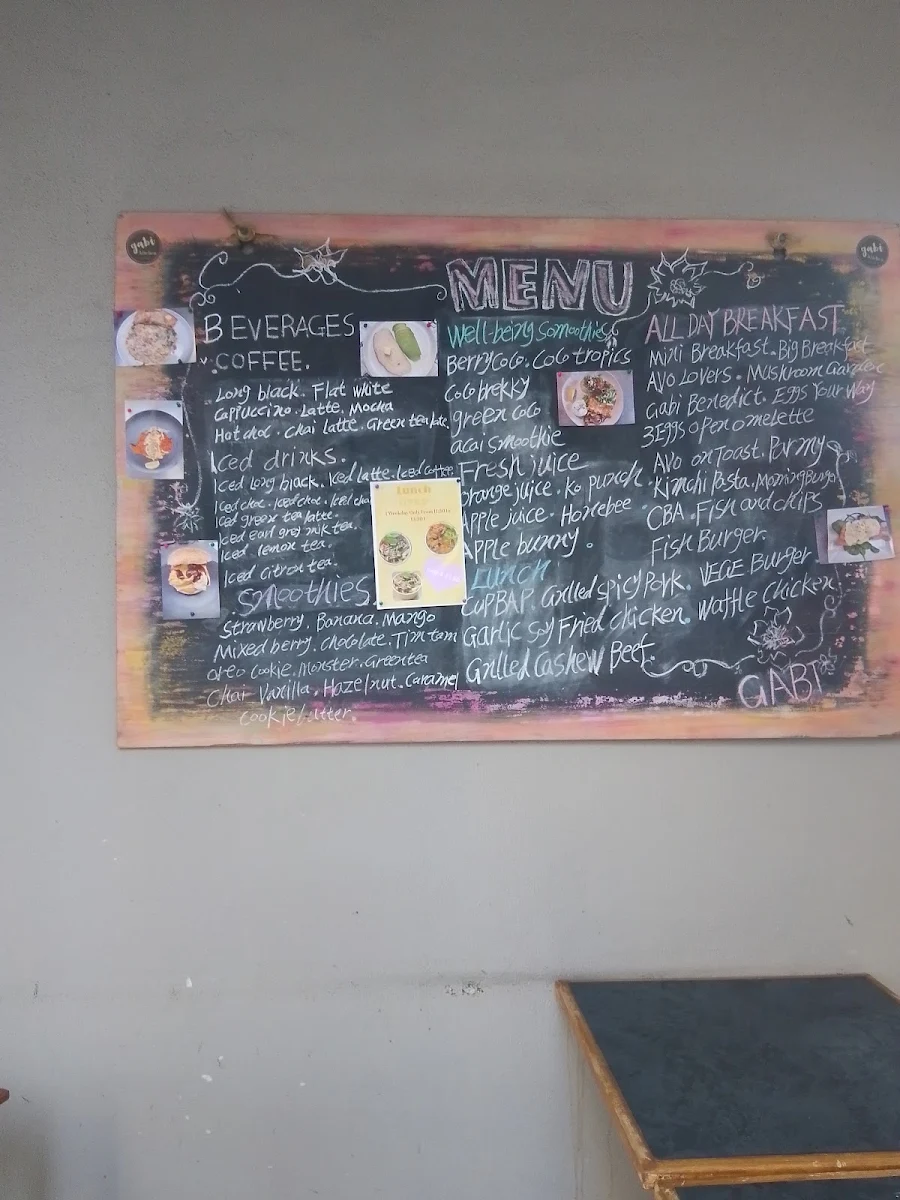 gabi
gabi
MENU
BEVERAGES
COFFEE.
Long black. Flat white
Cappuccino. Latte. Mocha
Hot choc. Chai latte. Green tea latte
Iced drinks.
Iced long black. Iced latte. Iced coffee
Iced choc. Iced choc. Iced chai
Iced green tea latte.
Iced earl grey milk tea.
Iced lemon tea.
Iced citron tea.
Smoothies
Strawberry. Banana. Mango
Mixed berry. Chocolate. Tim tam
oreo cookie. Monster. Greentea
Chai Vanilla. Hazelnut. Caramel
Cookie butter.
Lunch
Well-being smoothies
Berry coco. Coco tropics
Coco brekky
green coco
acai smoothie
Fresh juice
Orange juice. Ko punch
Apple juice. Honeybee
Apple bunny.
Lunch
CUPBAP. Grilled spicy Pork. VEGE Burger
Garlic Soy Fried chicken. Waffle Chicken.
Grilled Cashew Beef.
ALL DAY BREAKFAST
Mini Breakfast. Big Breakfast
Avo Lovers. Mushroom Garden
Gabi Benedict. Eggs Your Way
3 Eggs open omelette
Avo on Toast. Parmy
Kimchi Pasta. Morning Burger
CBA. Fish and chips
Fish Burger.
GABI